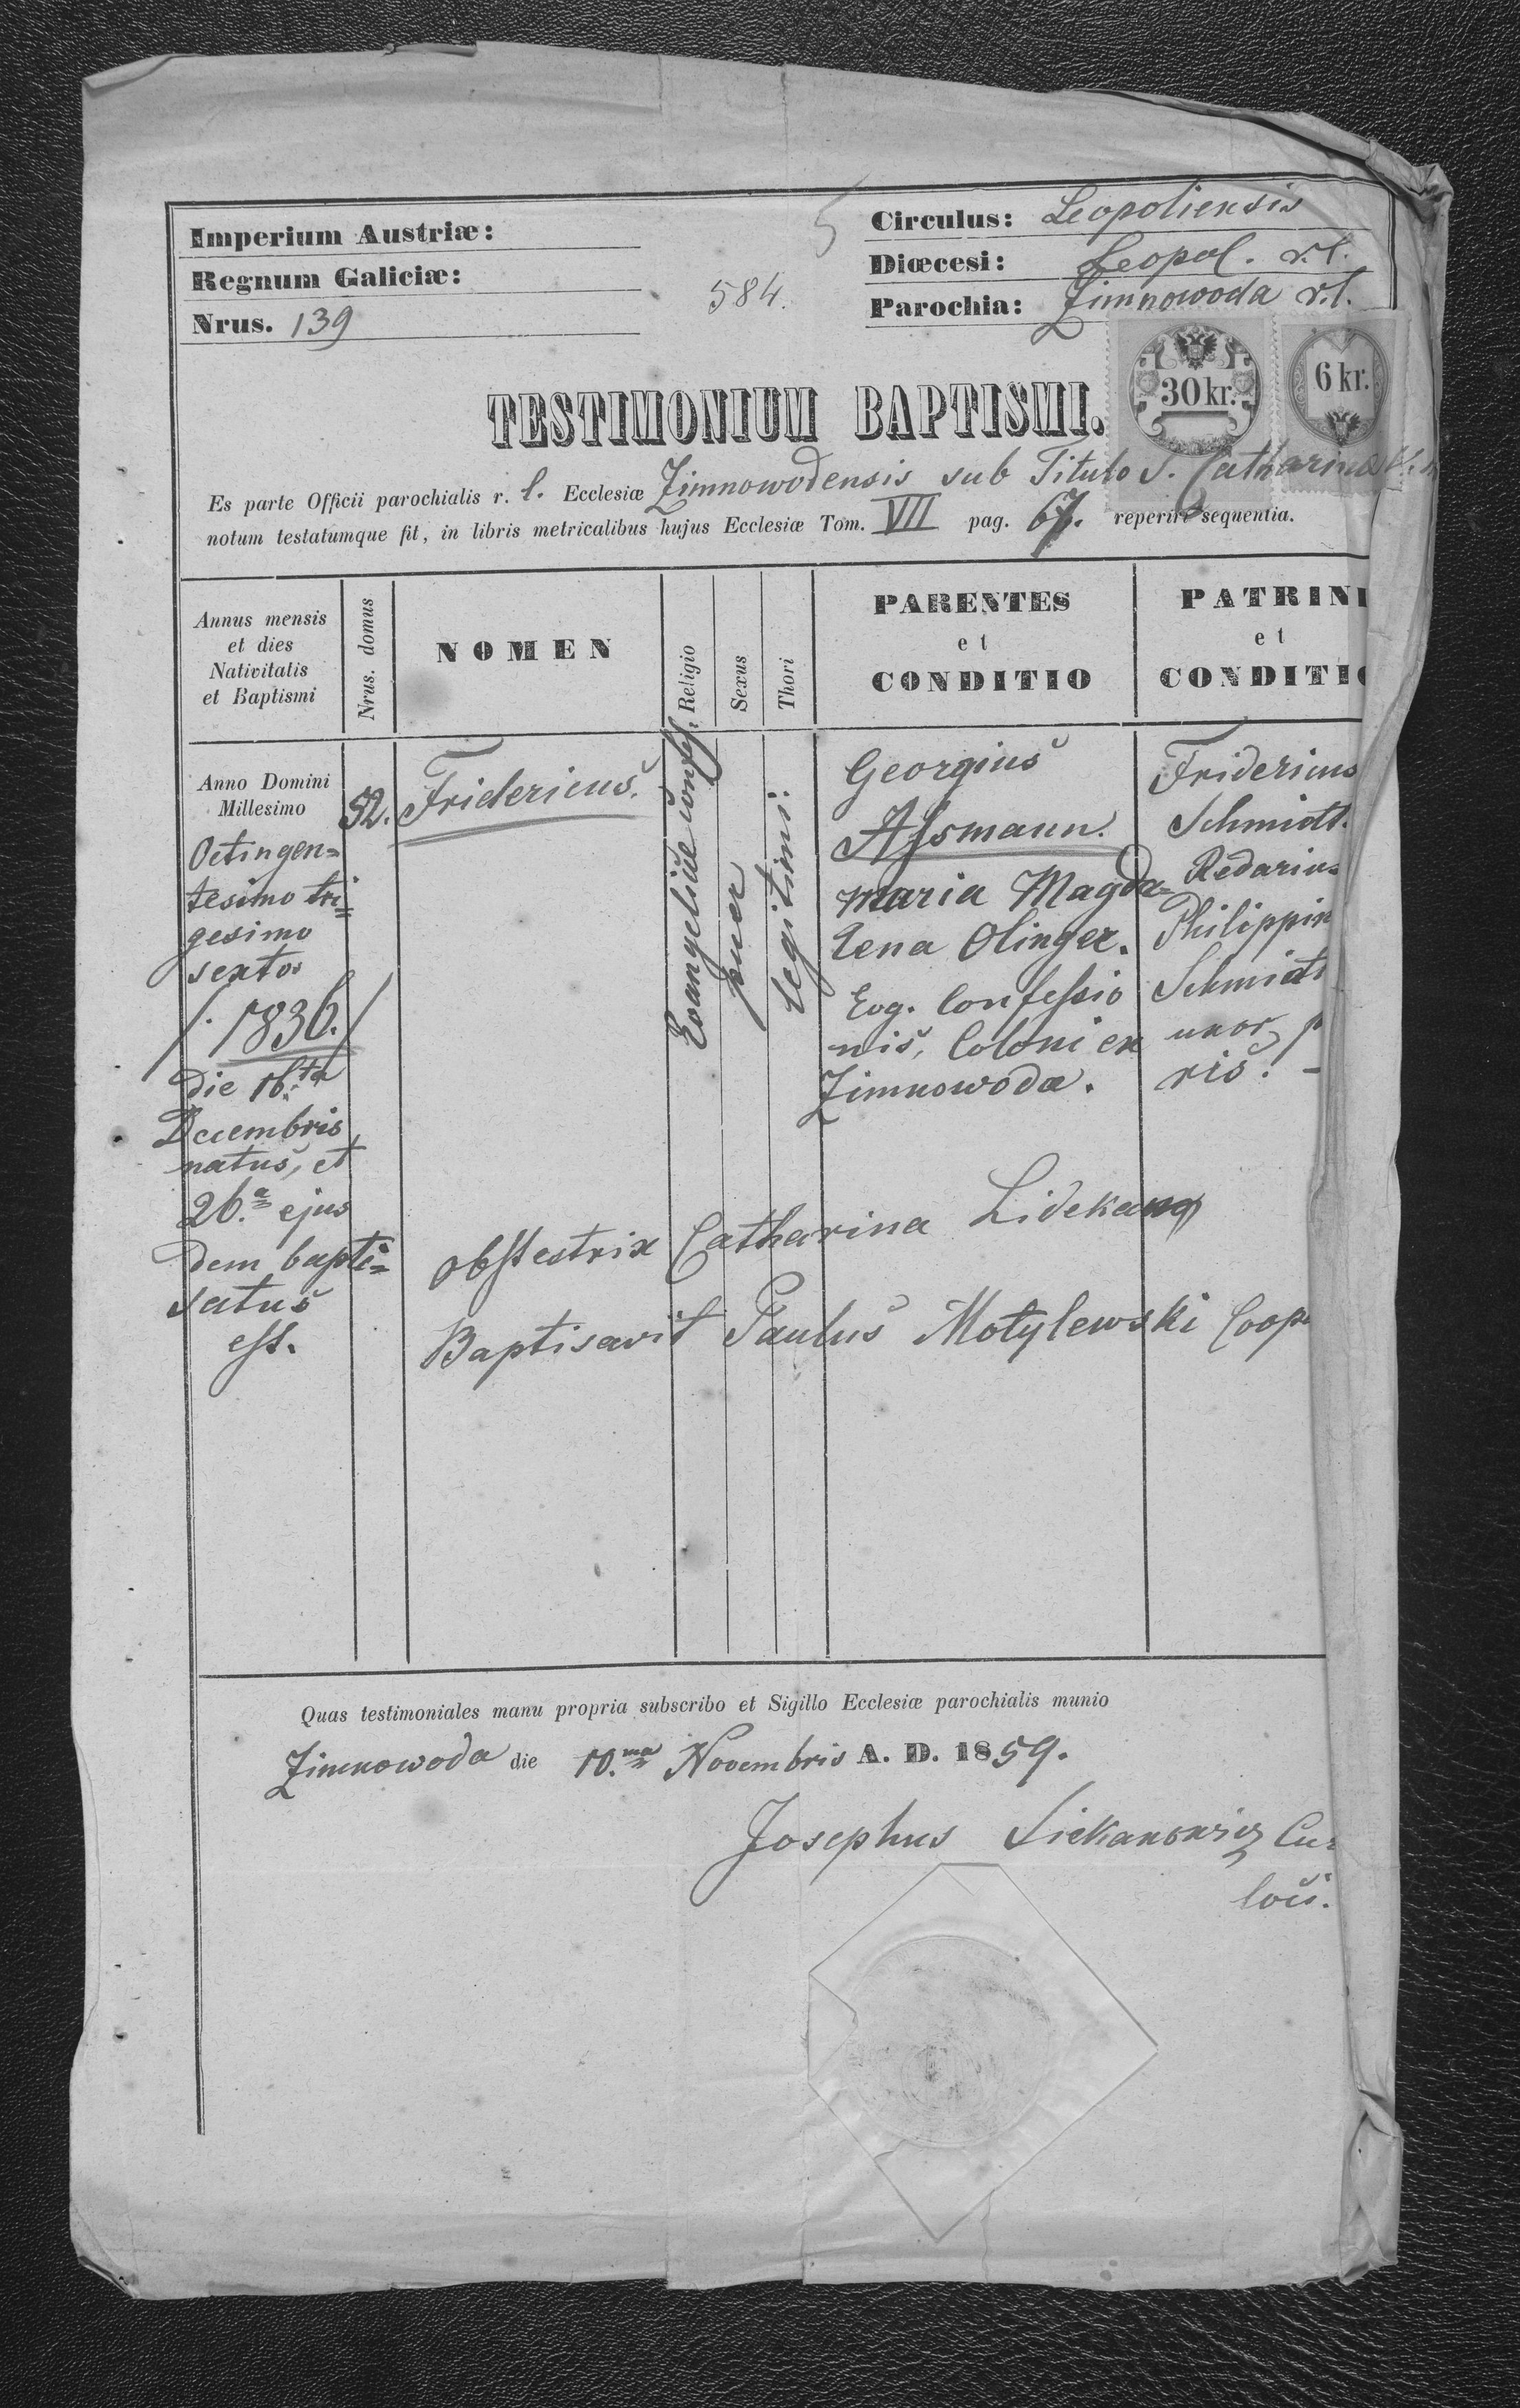 Imperium Austriæ:
Regnum Galiciæ:
Nrus. 139
5
584.
Circulus: Leopoliensis
Diœcesi: Leopol. r.l.
Parochia: Zimnowoda r.l.
30 kr.
6 kr.
TESTIMONIUM BAPTISMI.
Es parte Officii parochialis r. l. Ecclesiæ Zimnowodensis sub Titulo S. Catharinae
notum testatumque fit, in libris metricalibus hujus Ecclesiæ Tom. VII pag. 67. reperiri sequentia.
Annus mensis
et dies
Nativitatis
et Baptismi
Nrus. domus
NOMEN
Religio
Sexus
Thori
PARENTES
et
CONDITIO
PATRINI
et
CONDITIO
Anno Domini
Millesimo
Octingen=
tesimo tri=
gesimo
sexto
/. 1836. /
die 16.ta
Decembris
natus, et
26.a ejus
dem bapti=
satus
est.
52.
Fridericus.
Evangelicae confess.
puer
legitimi.
Georgius
Assmann.
Maria Magda=
lena Olinger.
Evg. Confessio
nis, Coloni ex
Zimnowoda.
Fridericus
Schmidt.
Redarius
Philippin
Schmidt
uxor
ris. -
Obstestrix Catharina Lidekang
Baptisavit Paulus Motylewski Coop
Quas testimoniales manu propria subscribo et Sigillo Ecclesiæ parochialis munio
Zimnowoda die 10.ma Novembris A. D. 1859.
Josephus Siekanowicz Cur
loci.